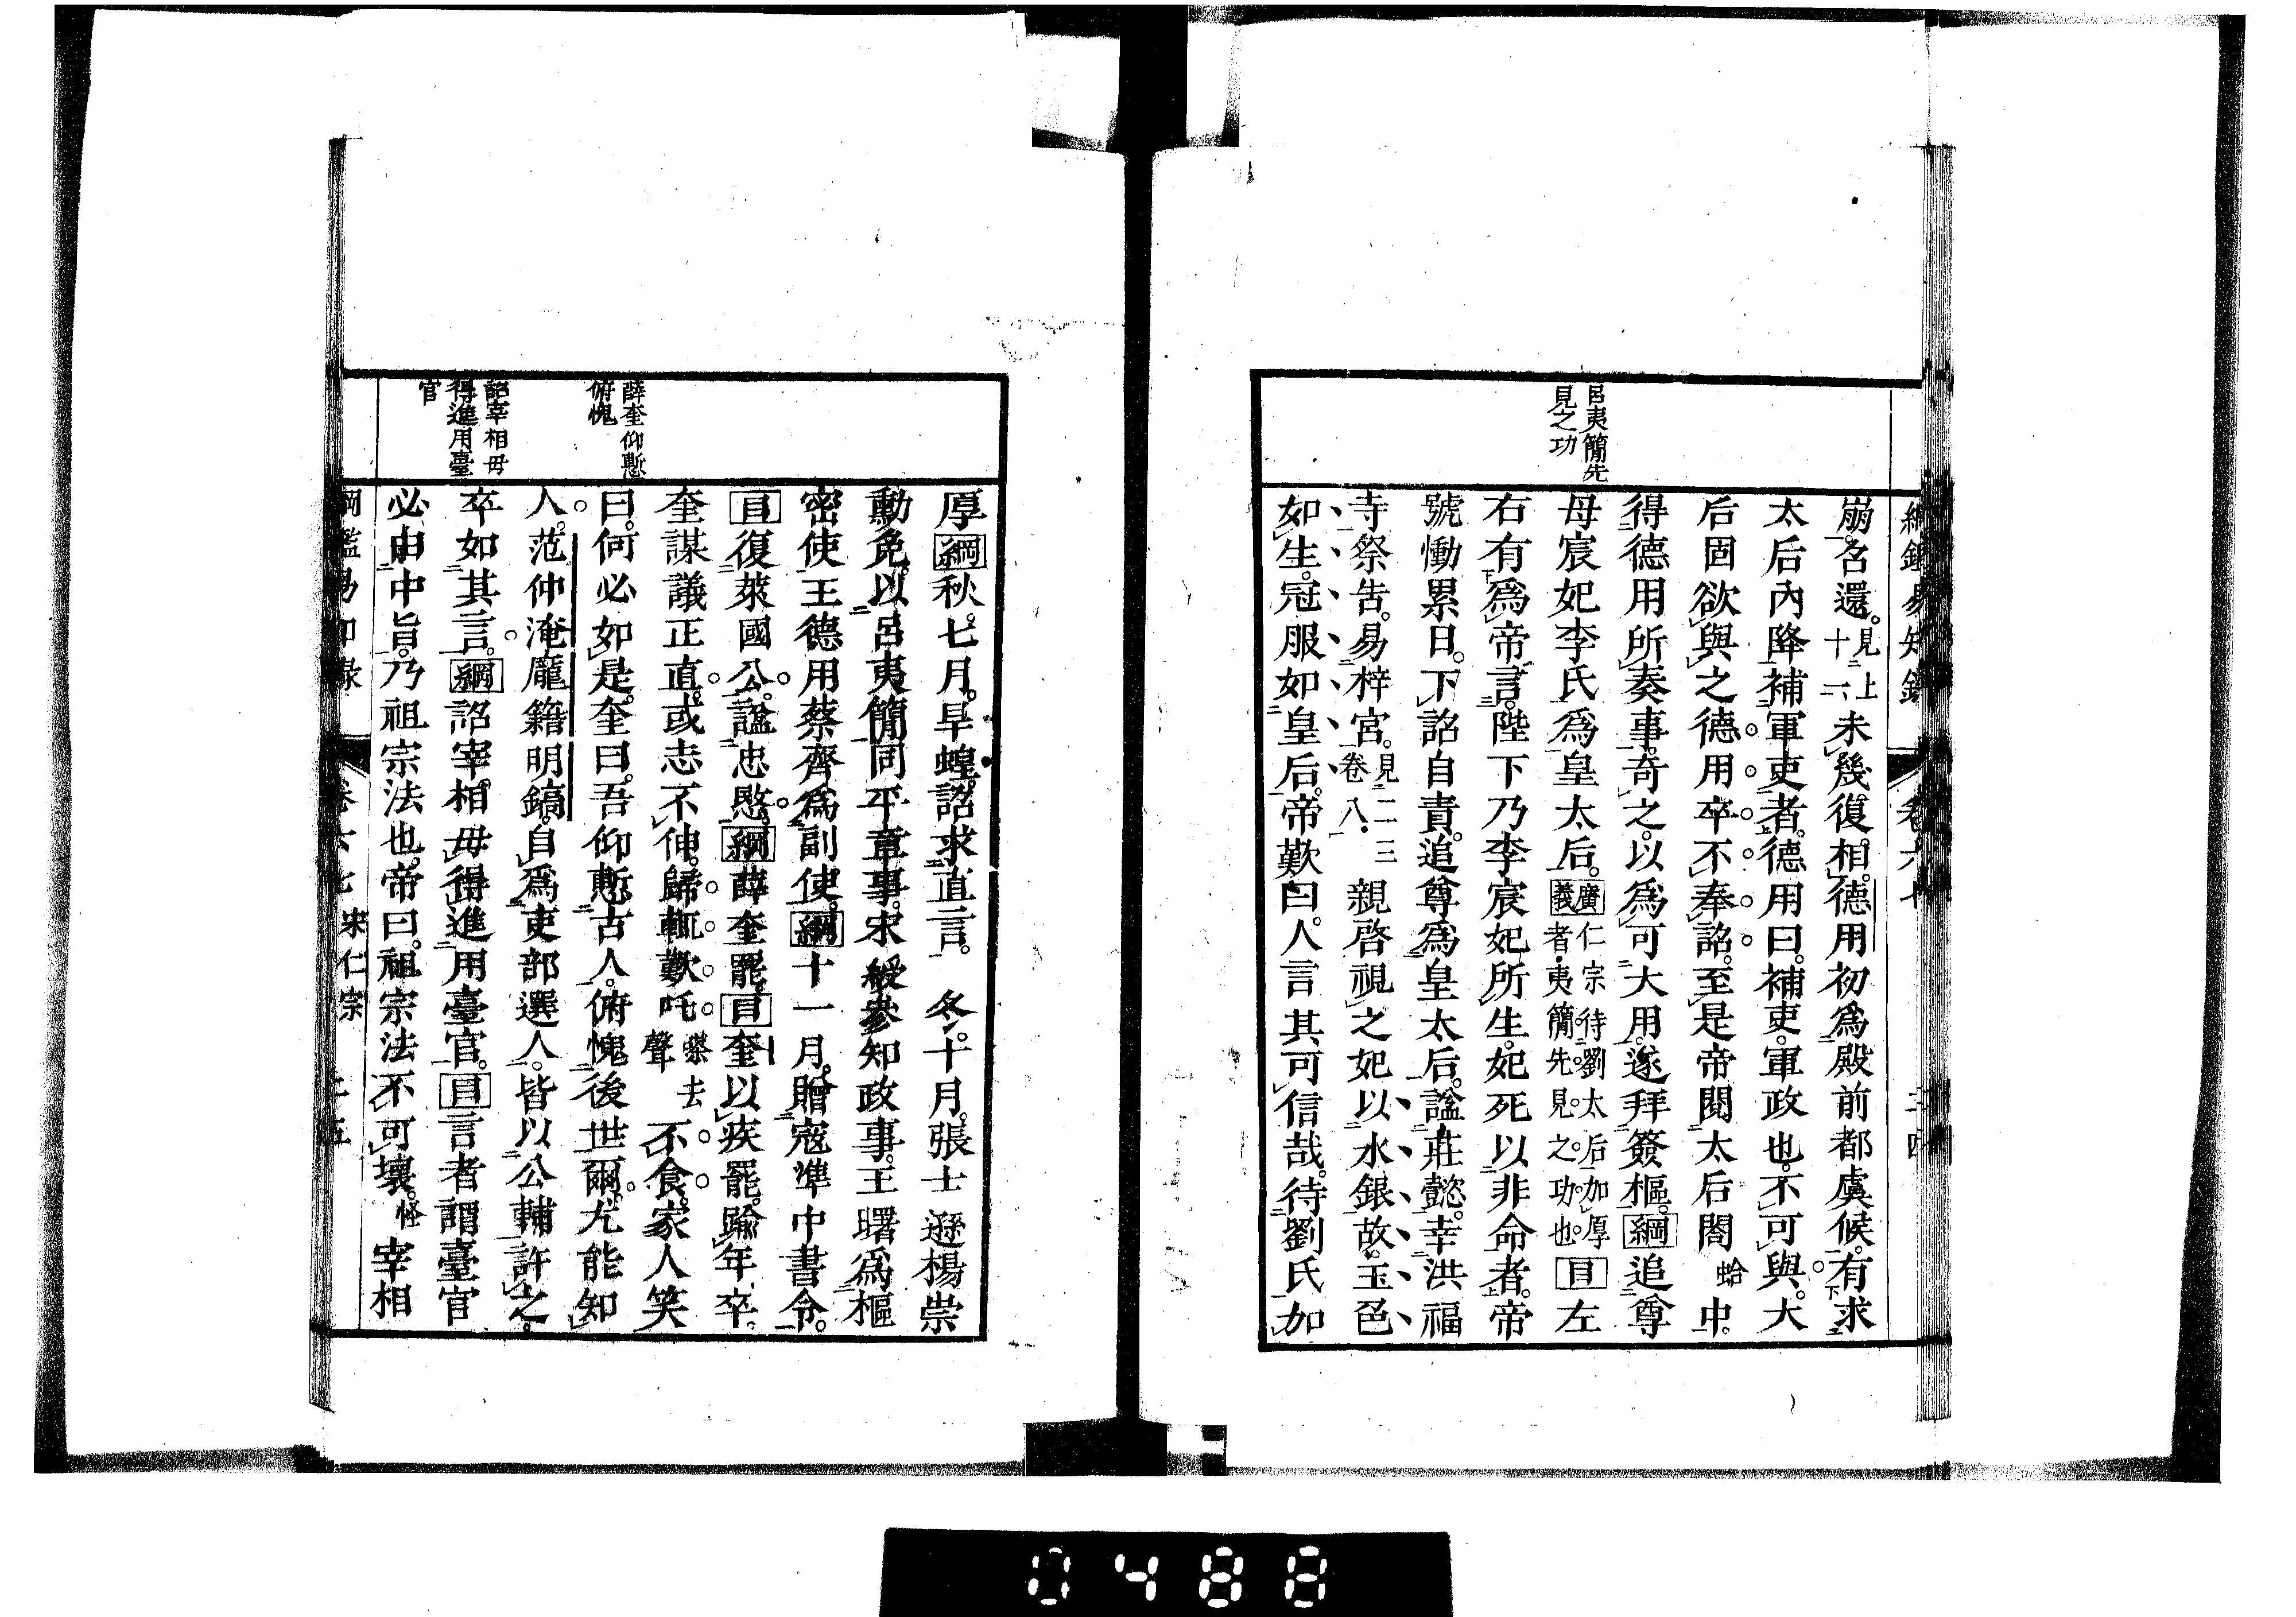 綱鑑易知錄 卷六七 二四
呂夷簡先
見之功
崩名還。見上十二、未幾復相。德用初爲殿前都虞候。有求
太后內降補軍吏者。德用曰。補吏。軍政也。不可與。大
后固欲與之。德用卒不奉詔。至是帝閱太后閣蛤中。
得德用所奏事。奇之。以爲可大用。遂拜簽樞。綱追尊
母宸妃李氏爲皇太后。廣義仁宗待劉太后加厚者。夷簡先見之功也。目左
右有爲帝言。陛下乃李宸妃所生。妃死以非命者。帝
號慟累日。下詔自責。追尊爲皇太后。謚莊懿。幸洪福
寺祭告。易梓宮。見二三卷八。親啓視之。妃以水銀故。玉色
如生。冠服如皇后。帝歎曰。人言其可信哉。待劉氏加
厚。綱秋。七月。旱蝗。詔求直言。 冬。十月。張士遜楊崇
勳免。以呂夷簡同平章事。宋綬參知政事。王曙爲樞
密使。王德用蔡齊爲副使。綱十一月。贈寇準中書令。
目復萊國公。謚忠愍。綱薛奎罷。目奎以疾罷。踰年卒。
奎謀議正直。或志不伸。歸輒歎吒搽去聲不食。家人笑
曰。何必如是。奎曰。吾仰慙古人。俯愧後世爾。尤能知
人。范仲淹龐籍明鎬。自爲吏部選人。皆以公輔許之。
卒如其言。綱詔宰相毋得進用臺官。目言者謂臺官
必由中旨。乃祖宗法也。帝曰。祖宗法不可壞。怪宰相
薛奎仰慙
俯愧
詔宰相毋
得進用臺
官
綱鑑易知錄 卷六七 宋仁宗 二五
0488